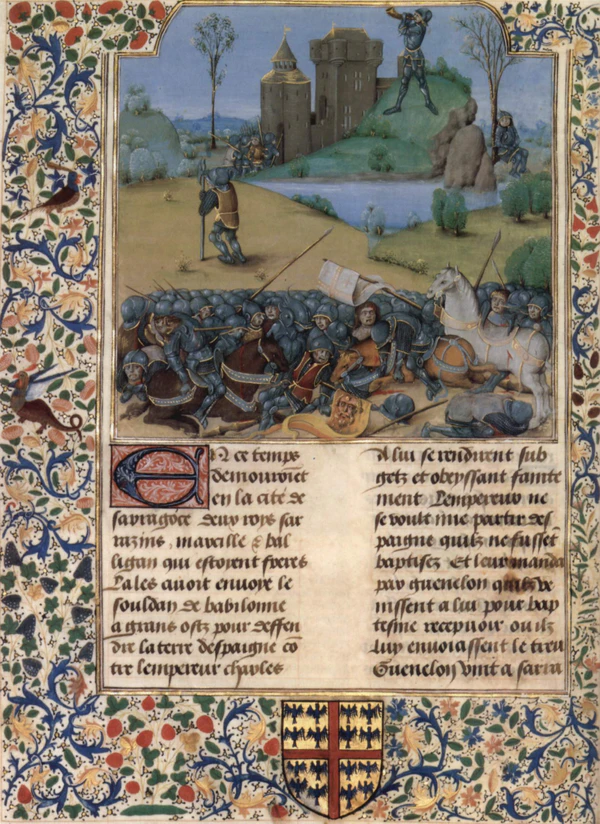 En ce temps
demouroiet
en la cite de
sarragoce deux roys sar
razins, marcille & bal
ligan qui estoyent freres
Lales auoit enuoye le
souldan de babilonne
a grans ostz pour deffen
dre la terre despaigne co
tre lempereur charles
A lui se rendirent sub
getz et obeyssant fainte
ment Lempereur ne
se voult mie partir des
paigne quilz ne fusset
baptisez Et leur manda
par guenelon quilz ve
nissent a lui pour bap
tesme recepuoir ou ilz
luy enuoiassent le treu
Guenelon vint a sarra